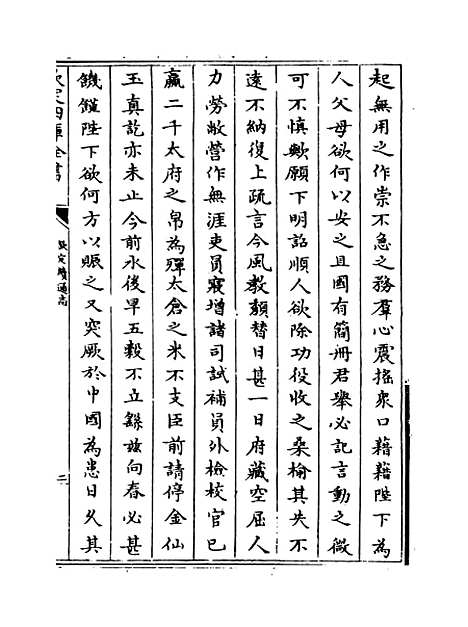 起無用之作崇不急之務羣心震揺衆口藉藉陛下為
人父母欲何以安之且國有簡册君舉必記言動之微
可不慎歟願下明詔順人欲除功役收之桑榆其失不
遠不納復上疏言今風教頽替日甚一日府藏空屈人
力勞敝營作無涯吏員寖增諸司試補員外檢校官已
贏二千太府之帛為殫太倉之米不支臣前請停金仙
玉真訖亦未止今前水後旱五穀不立繇兹向春必甚
饑饉陛下欲何方以賑之又突厥於中國為患日久其
欽定四庫全書
欽定續通志
二